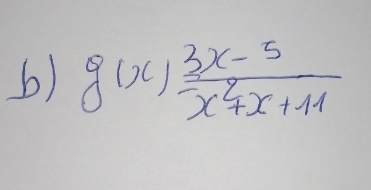 b) g(x) = \frac{3x - 5}{x^2 + x + 11}